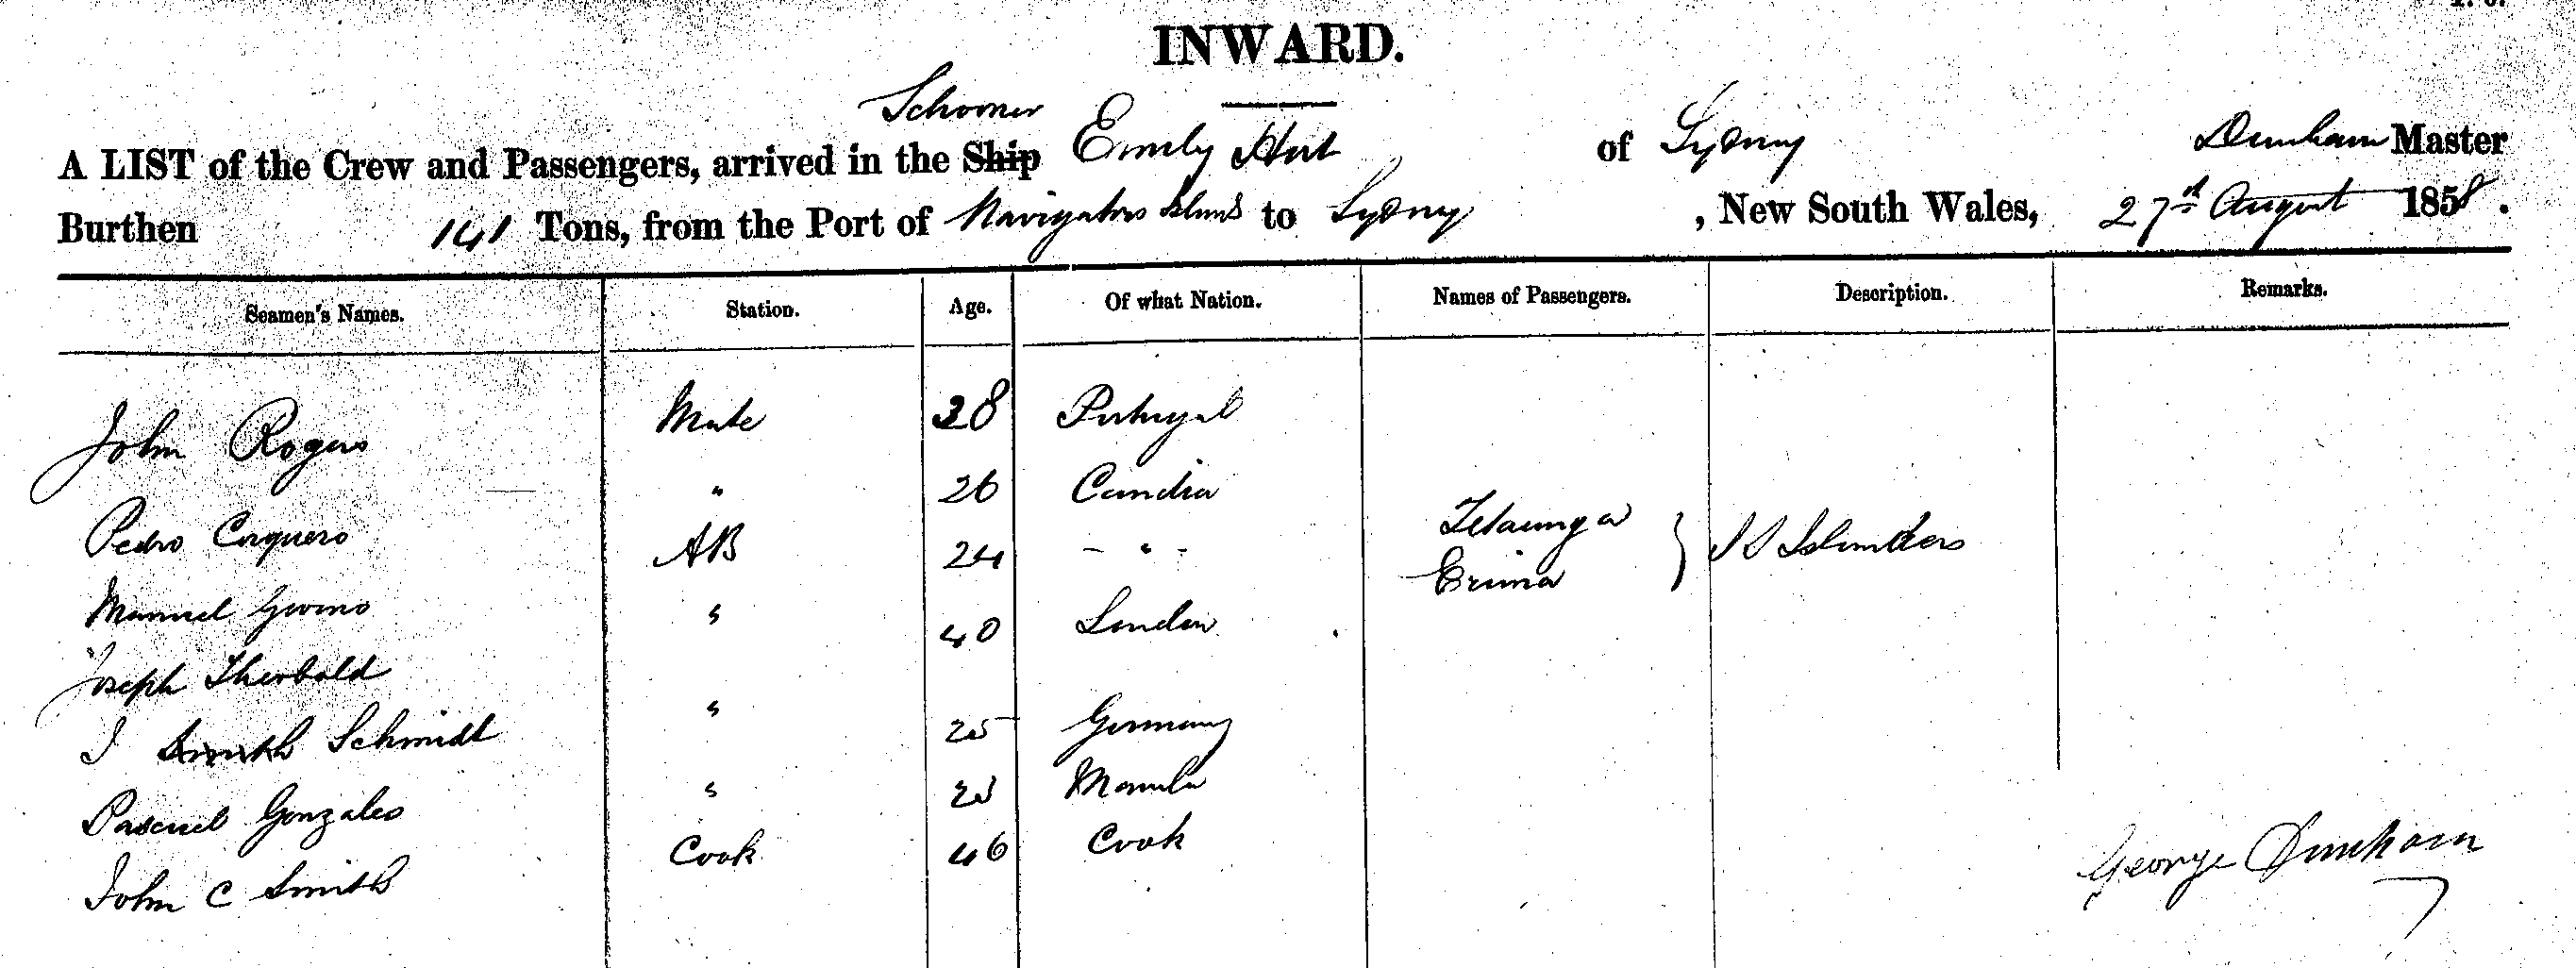 INWARD.
Schooner
A LIST of the Crew and Passengers, arrived in the Ship Emily Hort of Sydney Dunham Master
Burthen 141 Tons, from the Port of Navigators Islands to Sydney, New South Wales, 27th August 1858.
Seamen's Names. Station. Age. Of what Nation. Names of Passengers. Description. Remarks.
John Rogers Mate 28 Portugal
Pedro " 26 Candia
Manuel AB 24 - " -
Joseph Theobald " 40 London
J Smith Schmidt " 25 Germany
Pascuel Gonzales " Manila
John C Smith Cook 46 Cook
} S S Islanders
George Dunham